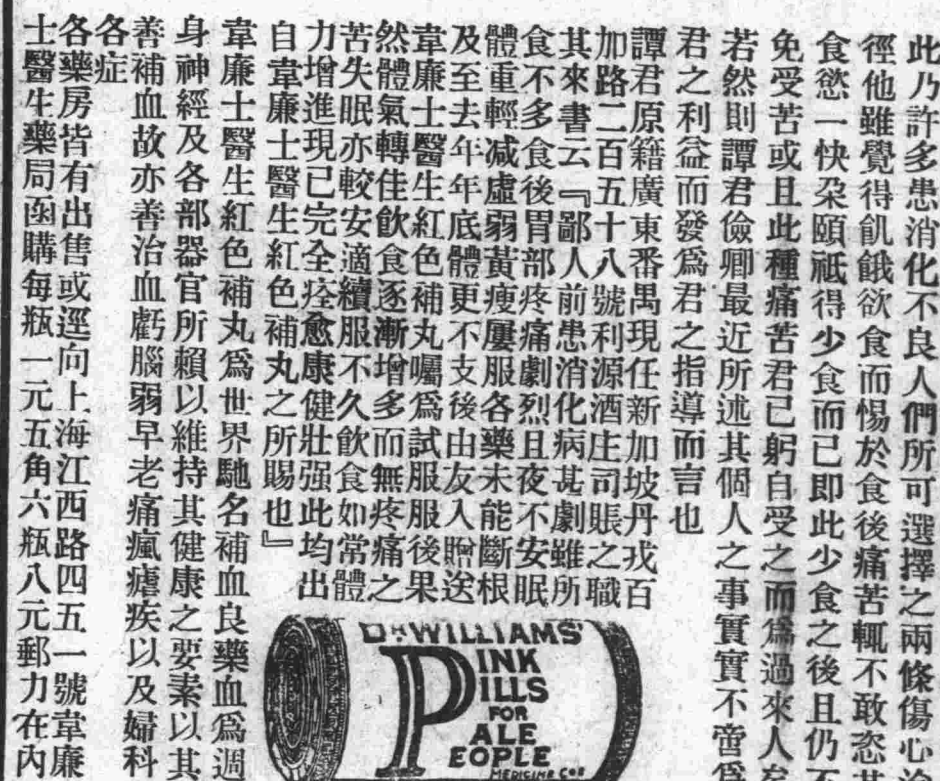 此乃許多患消化不良人們所可選擇之兩條傷心
徑他雖覺得飢餓欲食而惕於食後痛苦輒不敢恣
食慾一快朶頤祇得少食而已即此少食之後且仍
免受苦或且此種痛苦君已躬自受之而爲過來人
若然則譚君儉卿最近所述其個人之事實實不啻爲
君之利益而發爲君之指導而言也
譚君原籍廣東番禺現任新加坡丹戎百
加路二百五十八號利源酒庄司賬之職
其來書云『鄙人前患消化病甚劇雖所
食不多食後胃部疼痛劇烈且夜不安眠
體重輕减虛弱黃瘦屢服各藥未能斷根
及至去年年底體更不支後由友人贈送
韋廉士醫生紅色補丸囑爲試服服後果
然體氣轉佳飲食逐漸增多而無疼痛之
苦失眠亦較安適續服不久飲食如常體
力增進現已完全痊愈康健壯强此均出
自韋廉士醫生紅色補丸之所賜也』
韋廉士醫生紅色補丸爲世界馳名補血良藥血爲週
身神經及各部器官所賴以維持其健康之要素以其
善補血故亦善治血虧腦弱早老痛瘋瘧疾以及婦科
各症
各藥房皆有出售或逕向上海江西路四五一號韋廉
士醫生藥局凾購每瓶一元五角六瓶八元郵力在內
DR WILLIAMS'
PINK
PILLS
FOR
PALE
PEOPLE
MEDICINE CO